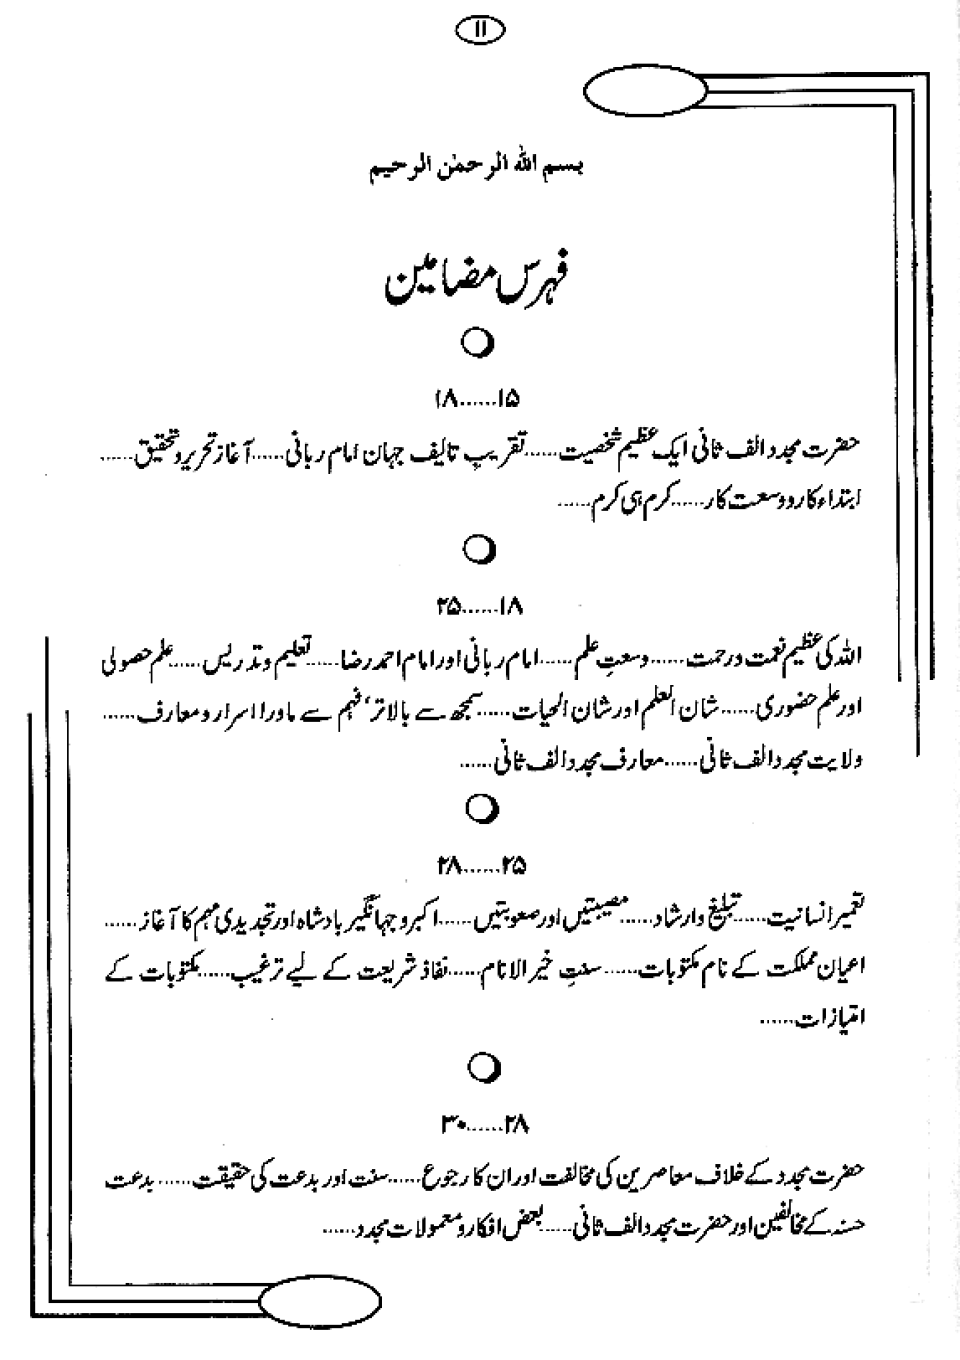 ۱۱
بسم اللہ الرحمٰن الرحیم
فہرس مضامین
۱۵......۱۸
حضرت مجدد الف ثانی ایک عظیم شخصیت......تقریب تالیف جہان امام ربانی......آغاز تحریر و تحقیق......
ابتداء کار و وسعت کار......کرم ہی کرم......
۱۸......۲۵
اللہ کی عظیم نعمت و رحمت......وسعتِ علم......امام ربانی اور امام احمد رضا......تعلیم و تدریس......علم حصولی
اور علم حضوری......شان العلم اور شان الحیات......سمجھ سے بالاتر، فہم سے ماورا اسرار و معارف......
ولایت مجدد الف ثانی......معارف مجدد الف ثانی......
۲۵......۲۸
تعمیر انسانیت......تبلیغ و ارشاد......مصیبتیں اور صعوبتیں......اکبر و جہانگیر بادشاہ اور تجدیدی مہم کا آغاز......
اعیان مملکت کے نام مکتوبات......سنتِ خیر الانام......نفاذ شریعت کے لیے ترغیب......مکتوبات کے
امتیازات......
۲۸......۳۰
حضرت مجدد کے خلاف معاصرین کی مخالفت اور ان کا رجوع......سنت اور بدعت کی حقیقت......بدعت
حسنہ کے مخالفین اور حضرت مجدد الف ثانی......بعض افکار و معمولات مجدد......